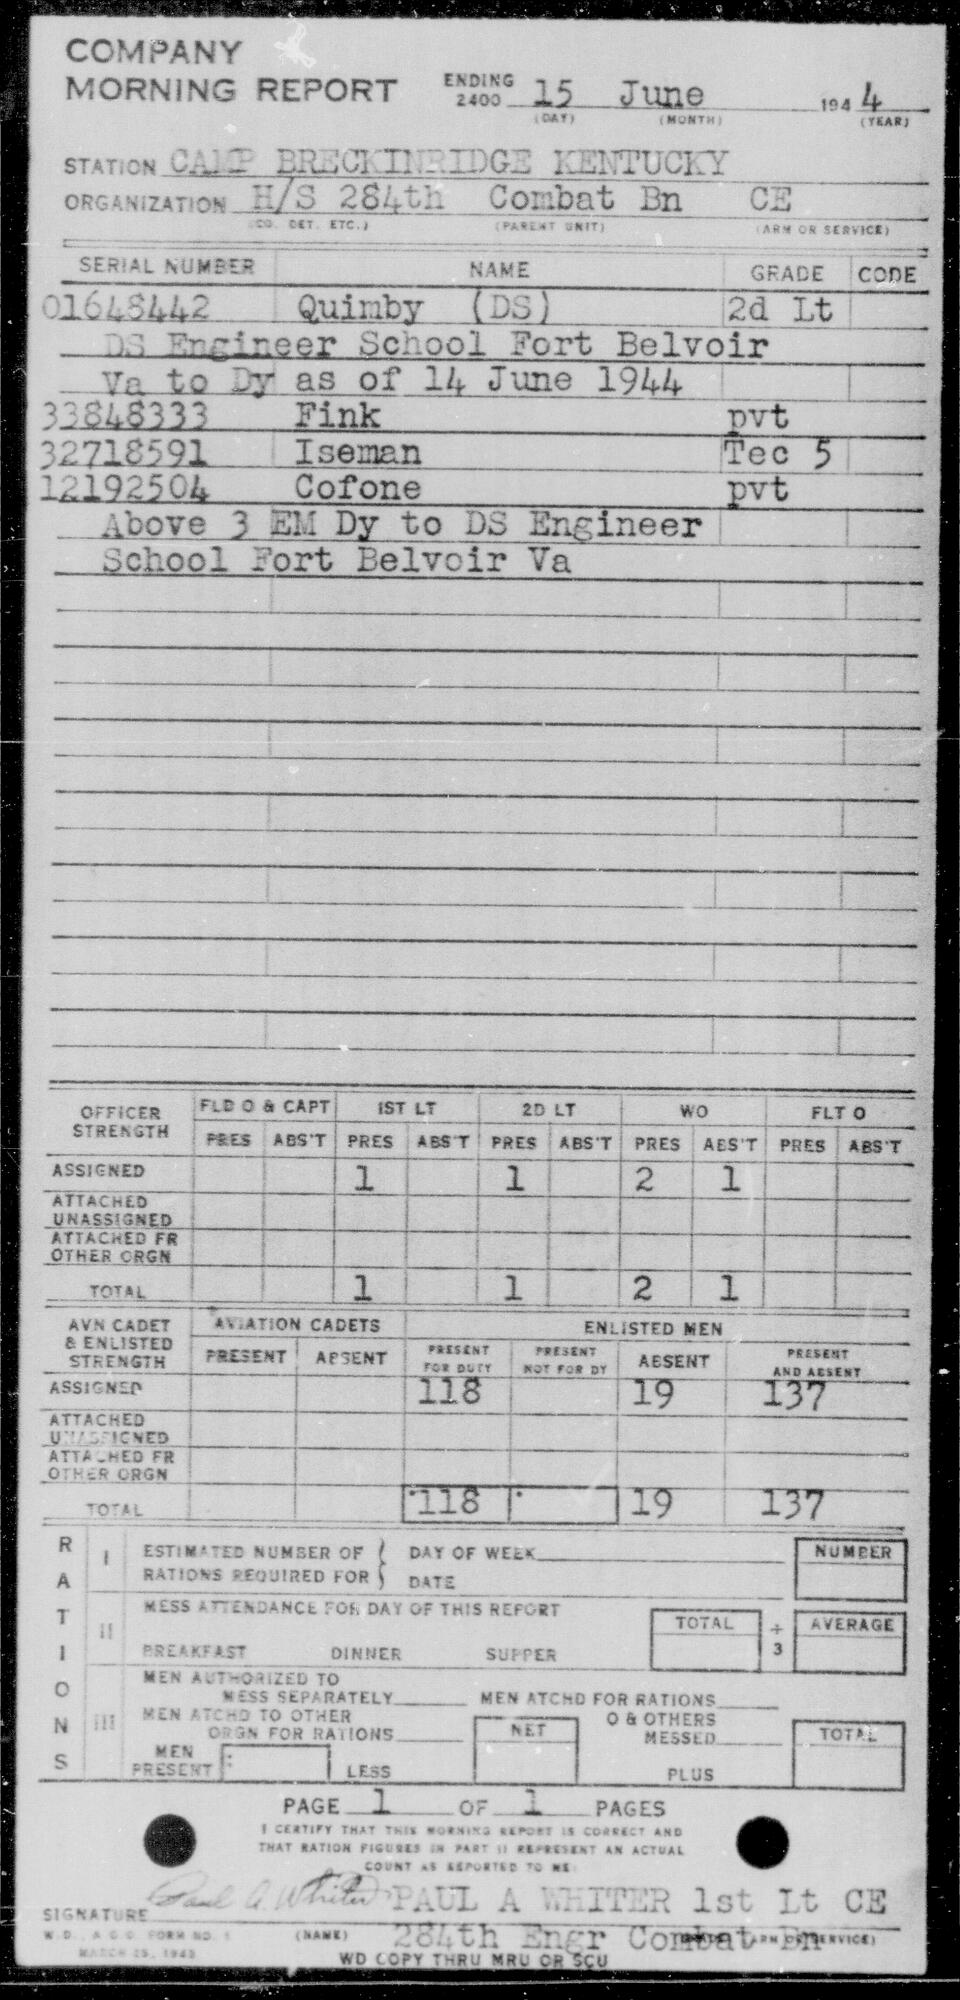 COMPANY
MORNING REPORT ENDING 2400 15 June 1944
(DAY) (MONTH) (YEAR)
STATION CAMP BRECKINRIDGE KENTUCKY
ORGANIZATION H/S 284th Combat Bn CE
(CO. DET. ETC.) (PARENT UNIT) (ARM OR SERVICE)
SERIAL NUMBER NAME GRADE CODE
01648442 Quimby (DS) 2d Lt
DS Engineer School Fort Belvoir
Va to Dy as of 14 June 1944
33848333 Fink pvt
32718591 Iseman Tec 5
12192504 Cofone pvt
Above 3 EM Dy to DS Engineer
School Fort Belvoir Va
OFFICER STRENGTH FLD O & CAPT 1ST LT 2D LT WO FLT O
PRES ABS'T PRES ABS'T PRES ABS'T PRES ABS'T PRES ABS'T
ASSIGNED 1 1 2 1
ATTACHED
UNASSIGNED
ATTACHED FR
OTHER ORGN
TOTAL 1 1 2 1
AVN CADET & ENLISTED STRENGTH AVIATION CADETS ENLISTED MEN
PRESENT ABSENT PRESENT FOR DUTY PRESENT NOT FOR DY ABSENT PRESENT AND ABSENT
ASSIGNED 118 19 137
ATTACHED
UNASSIGNED
ATTACHED FR
OTHER ORGN
TOTAL 118 19 137
RATIONS
I ESTIMATED NUMBER OF DAY OF WEEK NUMBER
RATIONS REQUIRED FOR DATE
II MESS ATTENDANCE FOR DAY OF THIS REPORT TOTAL ÷ 3 AVERAGE
BREAKFAST DINNER SUPPER
III MEN AUTHORIZED TO
MESS SEPARATELY MEN ATCHD FOR RATIONS
MEN ATCHD TO OTHER O & OTHERS
ORGN FOR RATIONS NET MESSED TOTAL
MEN PRESENT LESS PLUS
PAGE 1 OF 1 PAGES
I CERTIFY THAT THIS MORNING REPORT IS CORRECT AND
THAT RATION FIGURES IN PART II REPRESENT AN ACTUAL
COUNT AS REPORTED TO ME:
Paul A Whiter PAUL A WHITER 1st Lt CE
SIGNATURE
W.D., A.G.O. FORM NO. 1 (NAME) 284th Engr Combat Bn (ARM OR SERVICE)
MARCH 25, 1943
WD COPY THRU MRU OR SCU